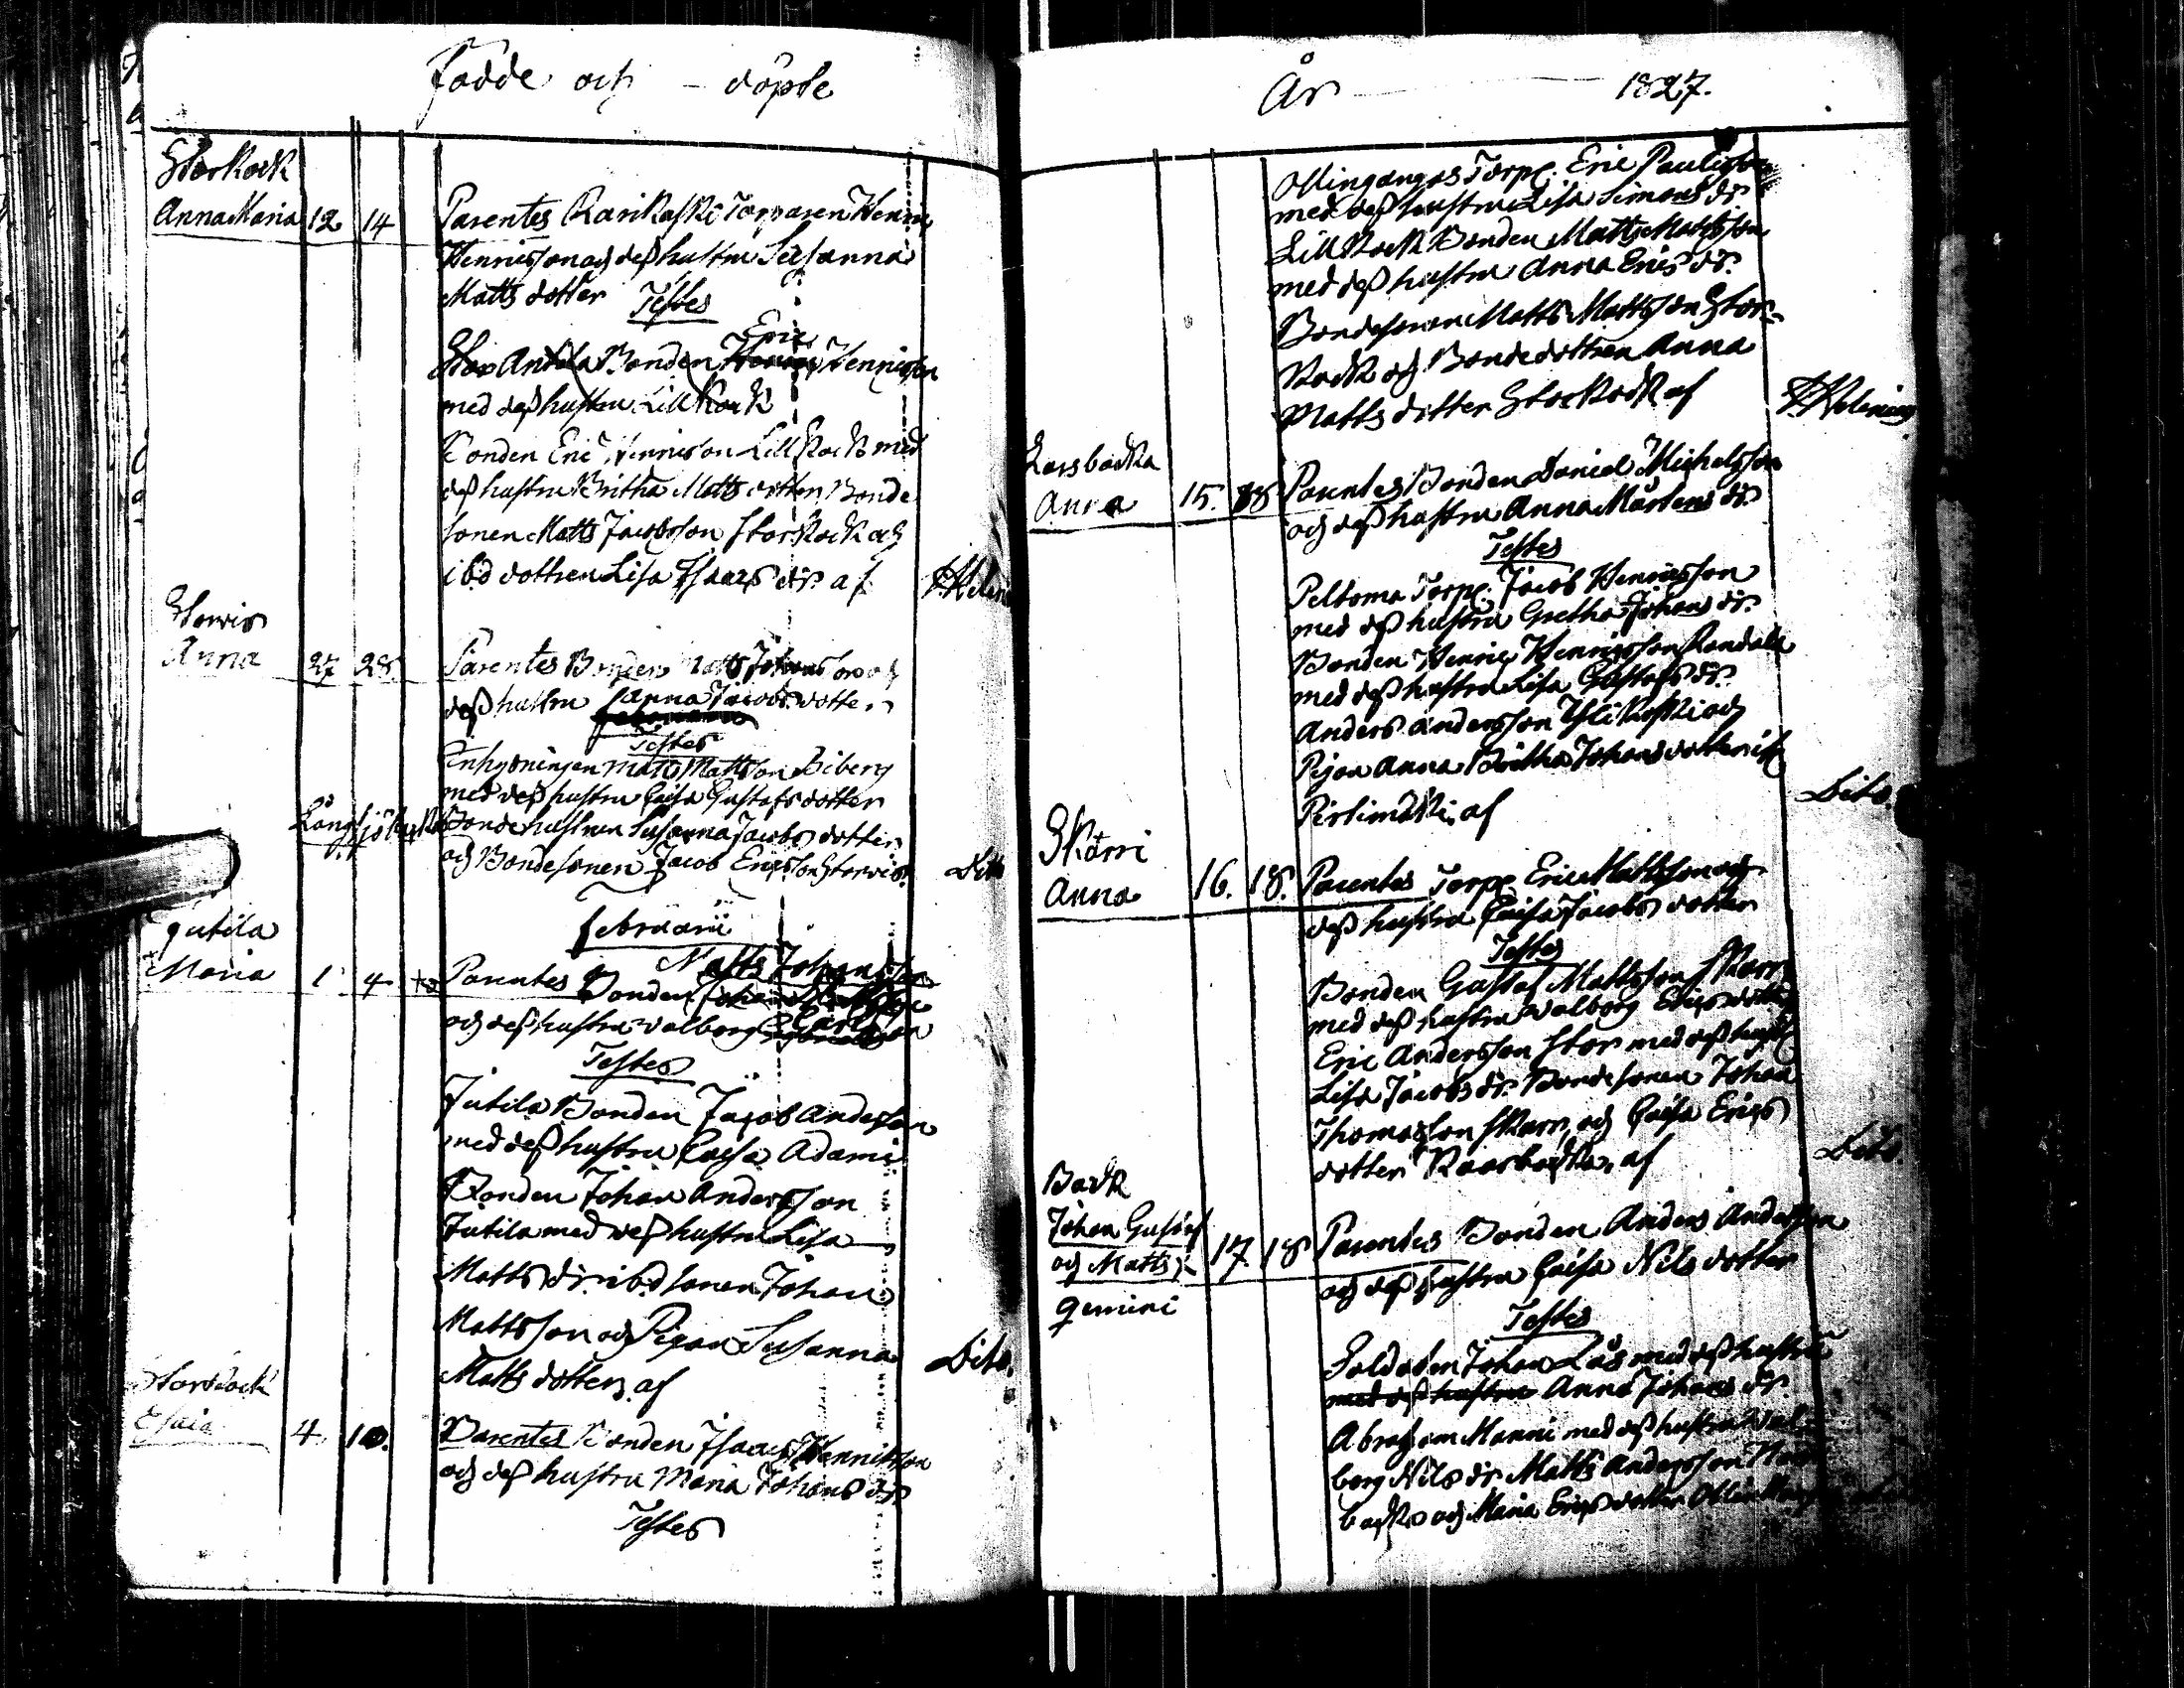 Födde och - döpte
Storkock
Anna Maria 12 14 Parentes Rarikaski Torparen Henric
Henricsson och dess hustru Susanna
Matts dotter Testes
Eric
Stor Antila Bonden Henric Henricsson
med dess hustru Lillkock
Bonden Eric Henricsson Lill Kock med
dess hustru Britha Matts dotter Bonde
sonen Matts Jacobsson Storkock och
ibd dottren Lisa Isaacs dr. af HHeleni
Storvis
Anna 27 28 Parentes Bonden Matts Johansson och
dess hustru Anna Jacobs dotter
Testes
Inhysningen Matts Mattsson Biberg
med dess hustru Caisa Gustafs dotter
Bondehustrun Susanna Jacobs dotter
och Bondesonen Jacob Ericsson Storvis. Dito
Februarii
Jutila Matts Johansson
Maria 1 4 Parentes Bonden Johan
och dess hustru Valborg
Testes
Jutila Bonden Jacob Andersson
med dess hustru Caisa Adami
Bonden Johan Andersson
Jutila med dess hustru Lisa
Matts dr. ibd sonen Johan
Mattsson och Pigan Susanna
Matts dotter, af Dito.
Storkock
Esaia 4 10. Parentes Bonden Isaac Henricsson
och dess hustru Maria Johans dr.
Testes
År 1827.
Ollingangas Torp. Eric Paulisson
med dess hustru Lisa Simons dr.
Lillkock Bonden Matts Mattsson
med dess hustru Anna Erics dr.
Bondesonen Matts Mattsson Stor=
kock och Bondedottren Anna
Matts dotter Storkock af HHelenius
Korsbäcka
Anna 15. 18 Parentes Bonden Daniel Michelsson
och dess hustru Anna Mårtens dr.
Testes
Peltoma Torp. Jacob Henricsson
med dess hustru Gretha Johans dr.
Bonden Henric Henricsson Rondala
med dess hustru Lisa Gustafs dr.
Anders Andersson Ylikoski och
Pigan Anna Britha Johans dotter
Pirtimäki, af Dito.
Skarri
Anna 16. 18. Parentes Torp. Eric Mattsson och
dess hustru Caisa Jacobs dotter
Testes
Bonden Gustaf Mattsson Skarri
med dess hustru Valborg Erics dotter
Eric Andersson Stor med dess hust.
Lisa Jacobs dr. Bondesonen Johan
Thomasson Skarri, och Caisa Erics
dotter Korsbäcka, af Dito.
Back
Johan Gustaf
och Matts 17. 18 Parentes Bonden Anders Andersson
gemini och dess hustru Caisa Nils dotter
Testes
Soldaten Johan Lås med dess hustru
med dess hustru Anna Johans dr.
Abraham Manni med dess hustru Val=
borg Nils dr. Matts Andersson
backa och Maria Erics dotter